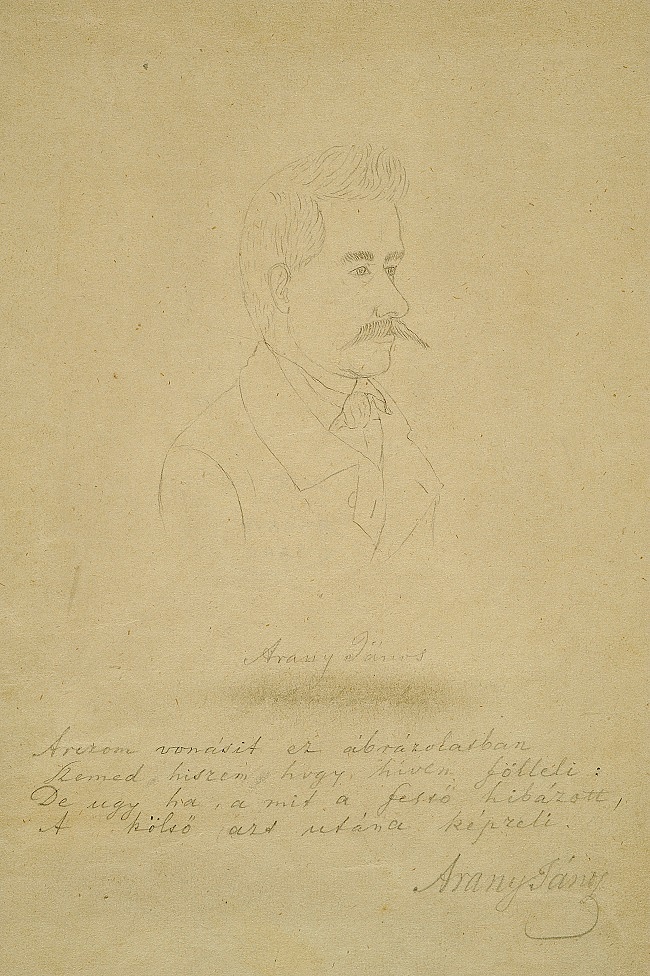 Arany János
Arczom vonásit ez ábrázolatban
Szemed, hiszem, hogy híven föлleli:
De ugy ha, a mit a festő hibázott,
A költő azt utána képzeli.
Arany János